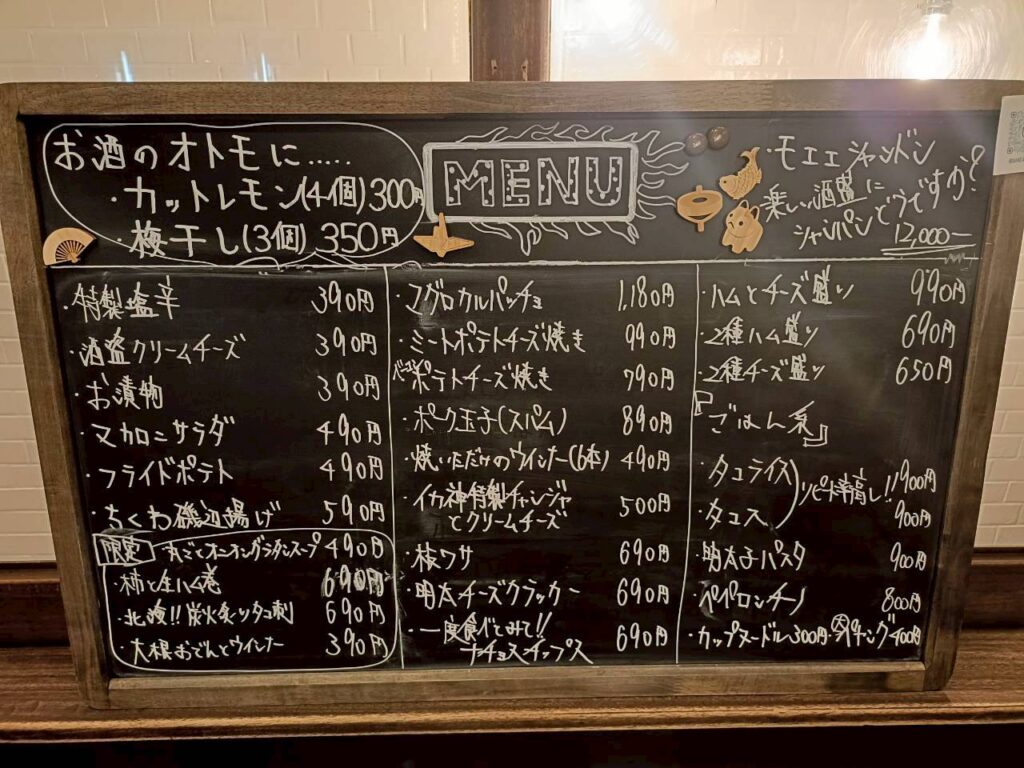 お酒のオトモに.....
・カットレモン(4個)300円
・梅干し(3個) 350円
MENU
・モエエシャンドン
楽しい酒盛に
シャンパンどうですか?
12,000-
・特製塩辛 390円
・酒盗クリームチーズ 390円
・お漬物 390円
・マカロニサラダ 490円
・フライドポテト 490円
・ちくわ磯辺揚げ 590円
限定 丸ごとオニオングラタンスープ 490円
・柿と生ハム巻 690円
・北海!!炭火炙りタコ刺 690円
・大根おでんとウインナー 390円
・マグロカルパッチョ 1,180円
・ミートポテトチーズ焼き 990円
・ポテトチーズ焼き 790円
・ポーク玉子(スパム) 890円
・焼いただけのウインナー(6本) 490円
・イカ神特製チャンジャ
とクリームチーズ 500円
・板ワサ 690円
・明太チーズクラッカー 690円
・一度食べてみて!!
ナチョスチップス 690円
・ハムとチーズ盛り 990円
・2種ハム盛り 690円
・2種チーズ盛り 650円
『ごはん系』
・タコライス 900円
リピート率高し!!
・タコス 900円
・明太子パスタ 900円
・ペペロンチーノ 800円
・カップヌードル300円・大ビッグ400円